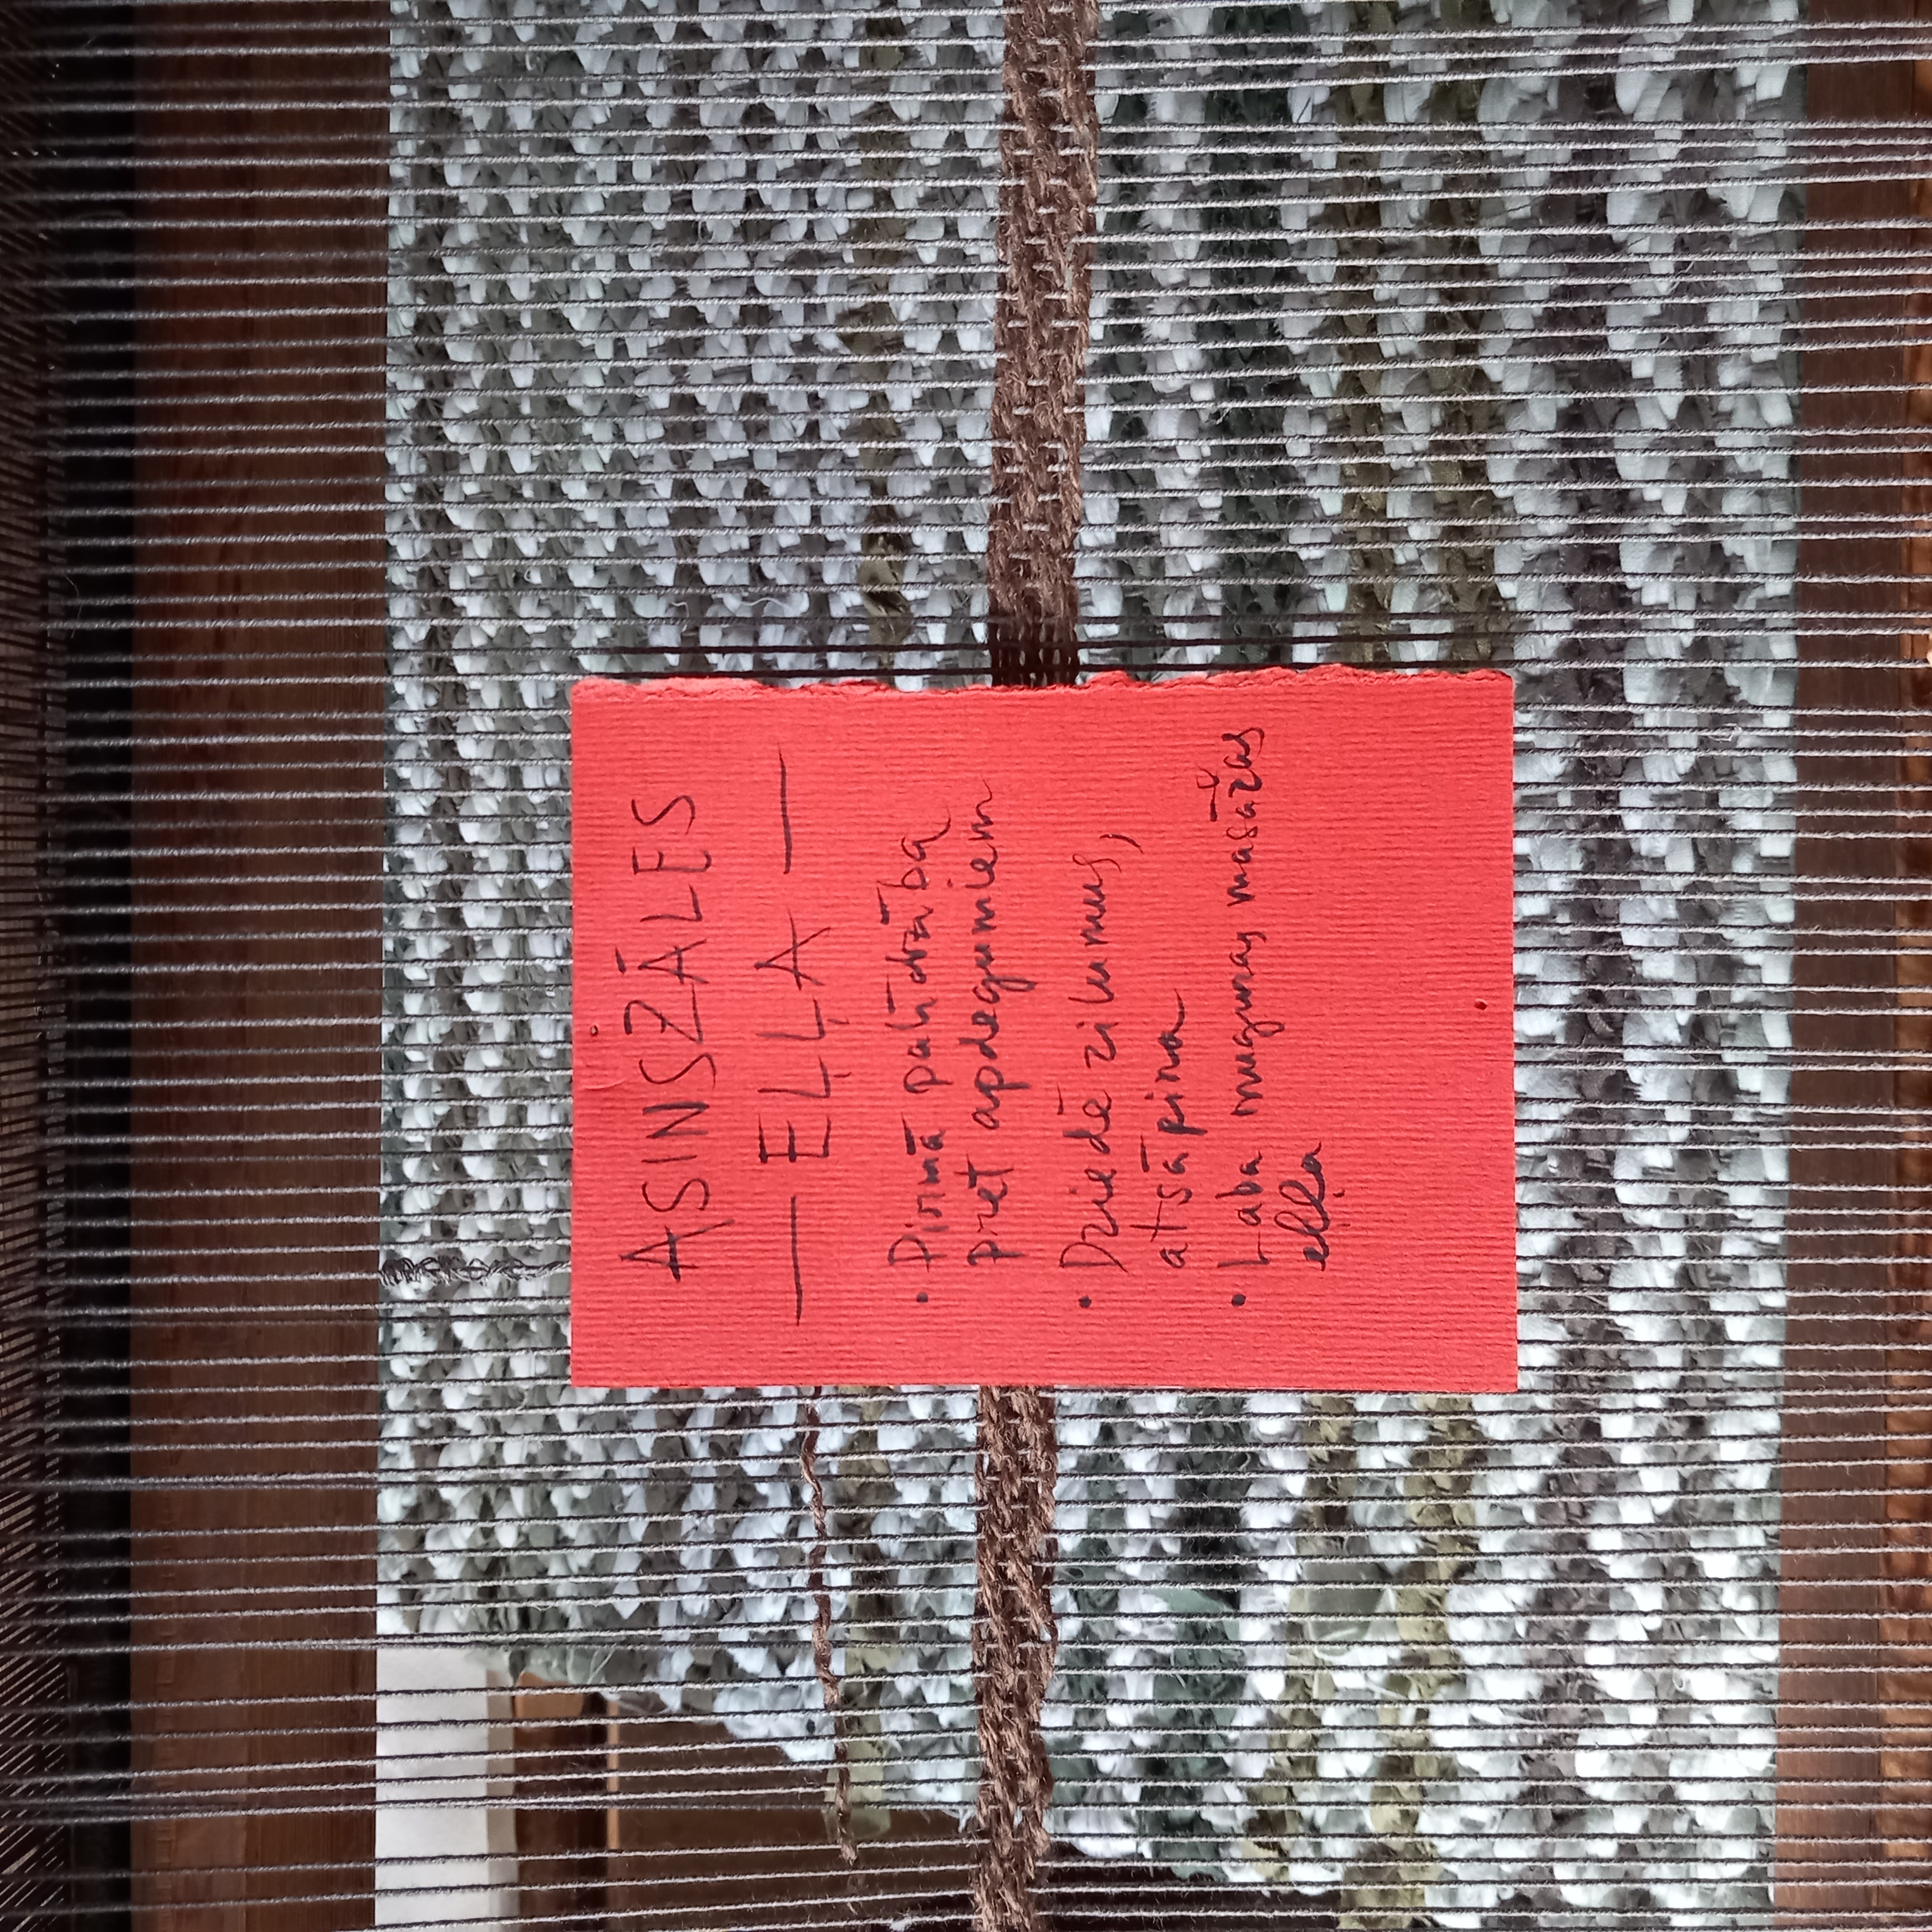 ASINSZĀLES
— EĻĻA —
• Pirmā palīdzība
pret apdegumiem
• Dziedē zilumus,
atsāpina
• Laba muguras masāžas
eļļa